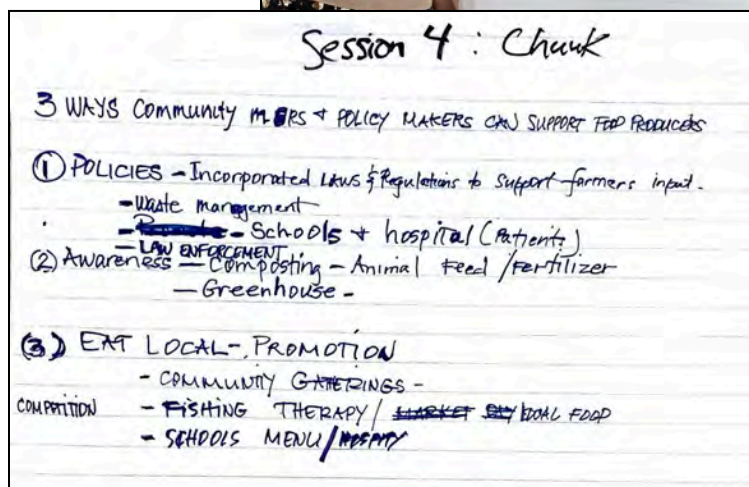 Session 4 : Chuuk
3 WAYS Community MBRS + POLICY MAKERS CAN SUPPORT FOOD PRODUCERS
① POLICIES - Incorporated Laws & Regulations to Support farmers input.
- Waste management
- Schools + hospital (Patients)
- LAW ENFORCEMENT
(2) Awareness — Composting - Animal Feed / Fertilizer
— Greenhouse -
(3) EAT LOCAL -, PROMOTION
- COMMUNITY GATHERINGS -
COMPETITION - FISHING THERAPY / LOCAL FOOD
- SCHOOLS MENU /